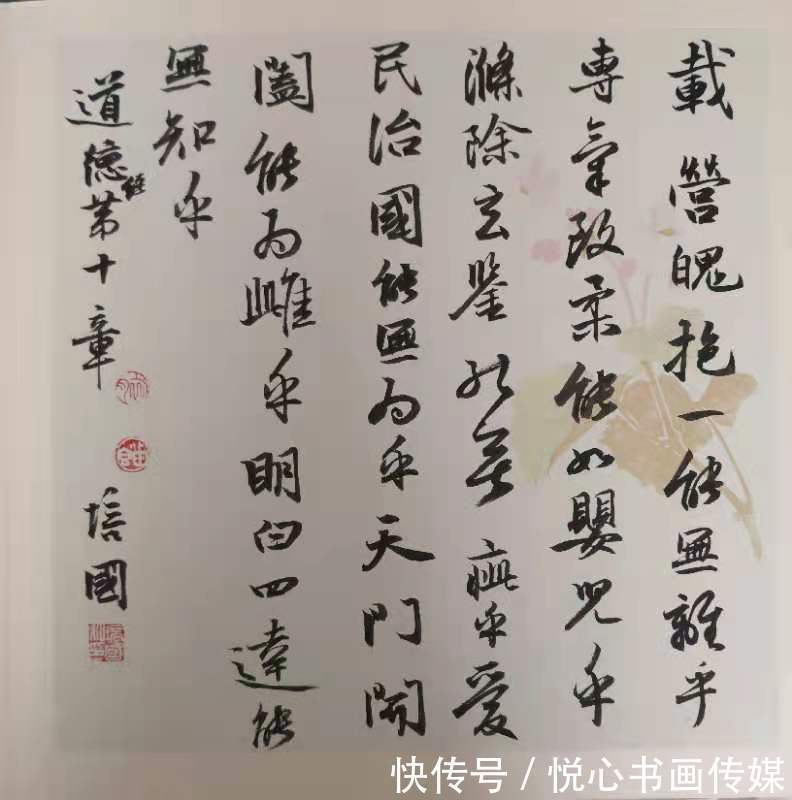 載營魄抱一能無離乎
專氣致柔能如嬰兒乎
滌除玄鑒能無疵乎愛
民治國能無為乎天門開
闔能為雌乎明白四達能
無知乎
道德經第十章
培國
快传号 / 悦心书画传媒